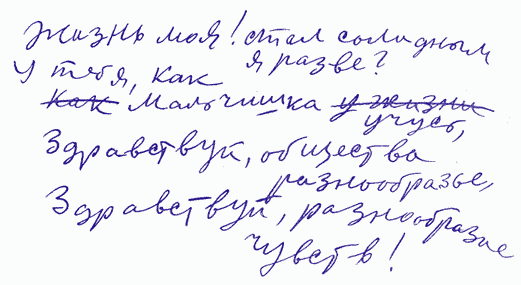 Жизнь моя! стал солидным
я разве?
У тебя, как
~~как~~ мальчишка ~~у жизни~~
учусь,
Здравствуй, общества
разнообразье,
Здравствуй, разнообразие
чувств!